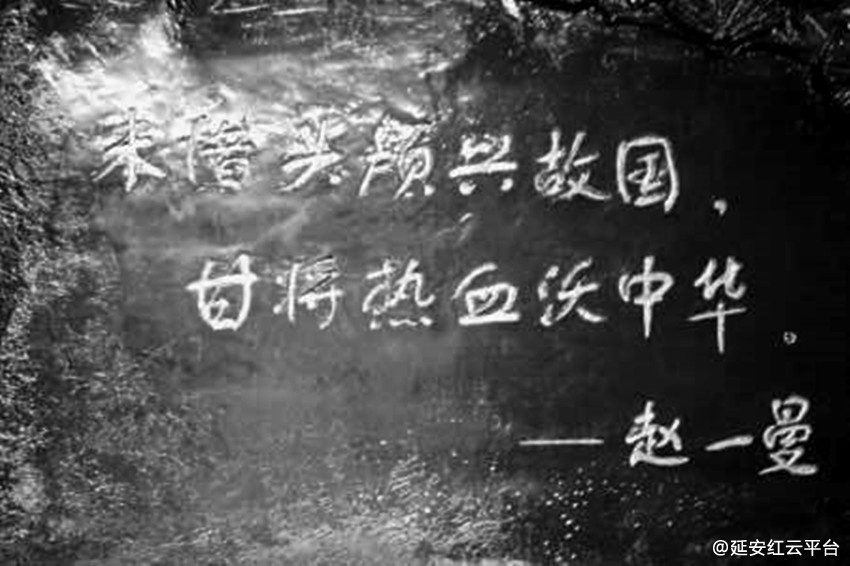 未惜头颅兴故国，
甘将热血沃中华。
——赵一曼
@延安红云平台